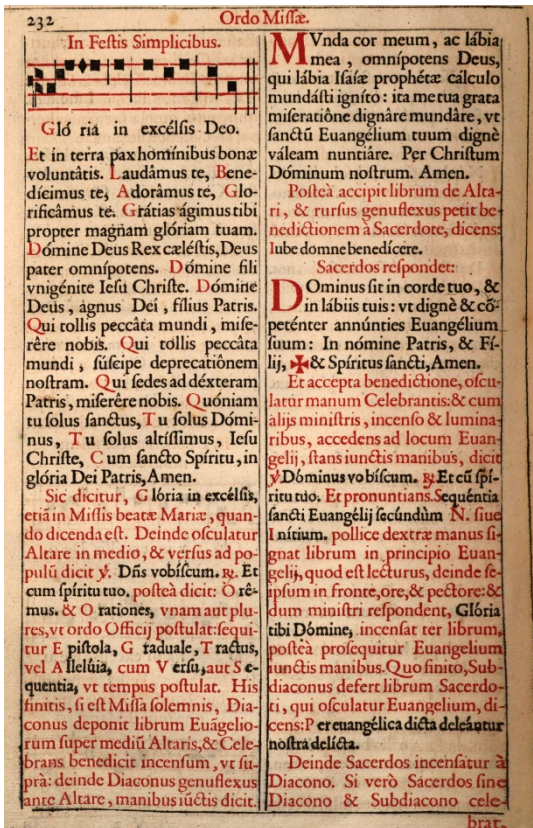 232
Ordo Missæ.
In Festis Simplicibus.
Gló ria in excélsis Deo.
Et in terra pax hominibus bonæ
voluntâtis. Laudâmus te, Bene-
dícimus te, Adorâmus te, Glo-
rificâmus te. Grátias ágimus tibi
propter magnam glóriam tuam.
Dómine Deus Rex cæléstis, Deus
pater omnípotens. Dómine fili
vnigénite Iesu Christe. Dómine
Deus, agnus Dei, fílius Patris.
Qui tollis peccâta mundi, mise-
rêre nobis. Qui tollis peccâta
mundi, súscipe deprecatiônem
nostram. Qui sedes ad déxteram
Patris, miserêre nobis. Quóniam
tu solus sanctus, Tu solus Dómi-
nus, Tu solus altíssimus, Iesu
Christe, Cum sancto Spíritu, in
glória Dei Patris, Amen.
Sic dicitur, Glória in excélsis,
etiã in Missis beatæ Mariæ, quan-
do dicenda est. Deinde osculatur
Altare in medio, & versus ad po-
pulũ dicit ℣. Dñs vobíscum. ℟. Et
cum spíritu tuo. posteà dicit: O rê-
mus. & O rationes, vnam aut plu-
res, vt ordo Officij postulat: sequi-
tur E pistola, G raduale, T ractus,
vel A llelúia, cum V ersu, aut S e-
quentia, vt tempus postulat. His
finitis, si est Missa solemnis, Dia-
conus deponit librum Euãgelio-
rum super mediũ Altaris, & Cele-
brans benedicit incensum, vt su-
prà: deinde Diaconus genuflexus
ante Altare, manibus iũctis dicit.
MVnda cor meum, ac lábia
mea, omnípotens Deus,
qui lábia Isaíæ prophétæ cálculo
mundásti igníto: ita me tua grata
miseratiône dignâre mundâre, vt
sanctũ Euangélium tuum dignè
váleam nuntiâre. Per Christum
Dóminum nostrum. Amen.
Posteà accipit librum de Alta-
ri, & rursus genuflexus petit be-
nedictionem à Sacerdote, dicens:
Iube domne benedícere.
Sacerdos respondet:
DOminus sit in corde tuo, &
in lábiis tuis: vt dignè & cõ-
peténter annúnties Euangélium
suum: In nómine Patris, & Fí-
lij, ✠ & Spíritus sancti, Amen.
Et accepta benedictione, oscu-
latur manum Celebrantis: & cum
alijs ministris, incenso & lumina-
ribus, accedens ad locum Euan-
gelij, stans iunctis manibus, dicit
℣. Dóminus vo bíscum. ℟. Et cũ spí-
ritu tuo. Et pronuntians. Sequéntia
sancti Euangélij secúndùm N. siue
I nítium. pollice dextræ manus si-
gnat librum in principio Euan-
gelij, quod est lecturus, deinde se-
ipsum in fronte, ore, & pectore: &
dum ministri respondent, Glória
tibi Dómine, incensat ter librum,
posteà prosequitur Euangelium
iunctis manibus. Quo finito, Sub-
diaconus defert librum Sacerdo-
ti, qui osculatur Euangelium, di-
cens: P er euangélica dicta deleántur
nostra delícta.
Deinde Sacerdos incensatur à
Diacono. Si verò Sacerdos sine
Diacono & Subdiacono cele-
brat,